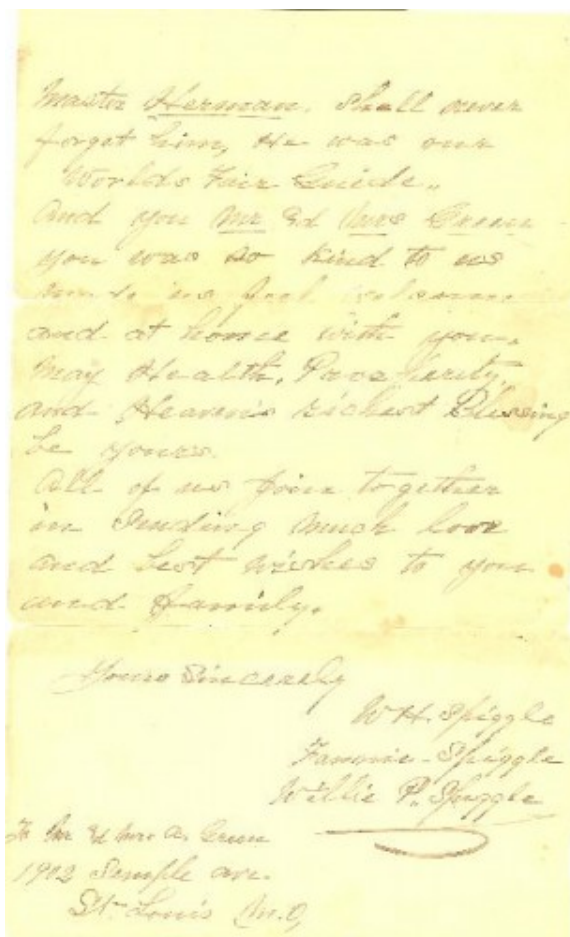 Master Herman. Shall never
forget him, He was our
Worlds Fair Guide.
And you Mr & Mrs Green
you was so kind to us
made us feel welcome
and at home with you.
May Health, Prosperity,
and Heaven's richest Blessing
be yours.
All of us join together
in sending much love
and best wishes to you
and family.
Yours Sincerely
W H. Spiggle
Fannie Spiggle
Willie P. Spiggle
To Mr & Mrs. A. Green
1902 Semple ave.
St Louis M.O,